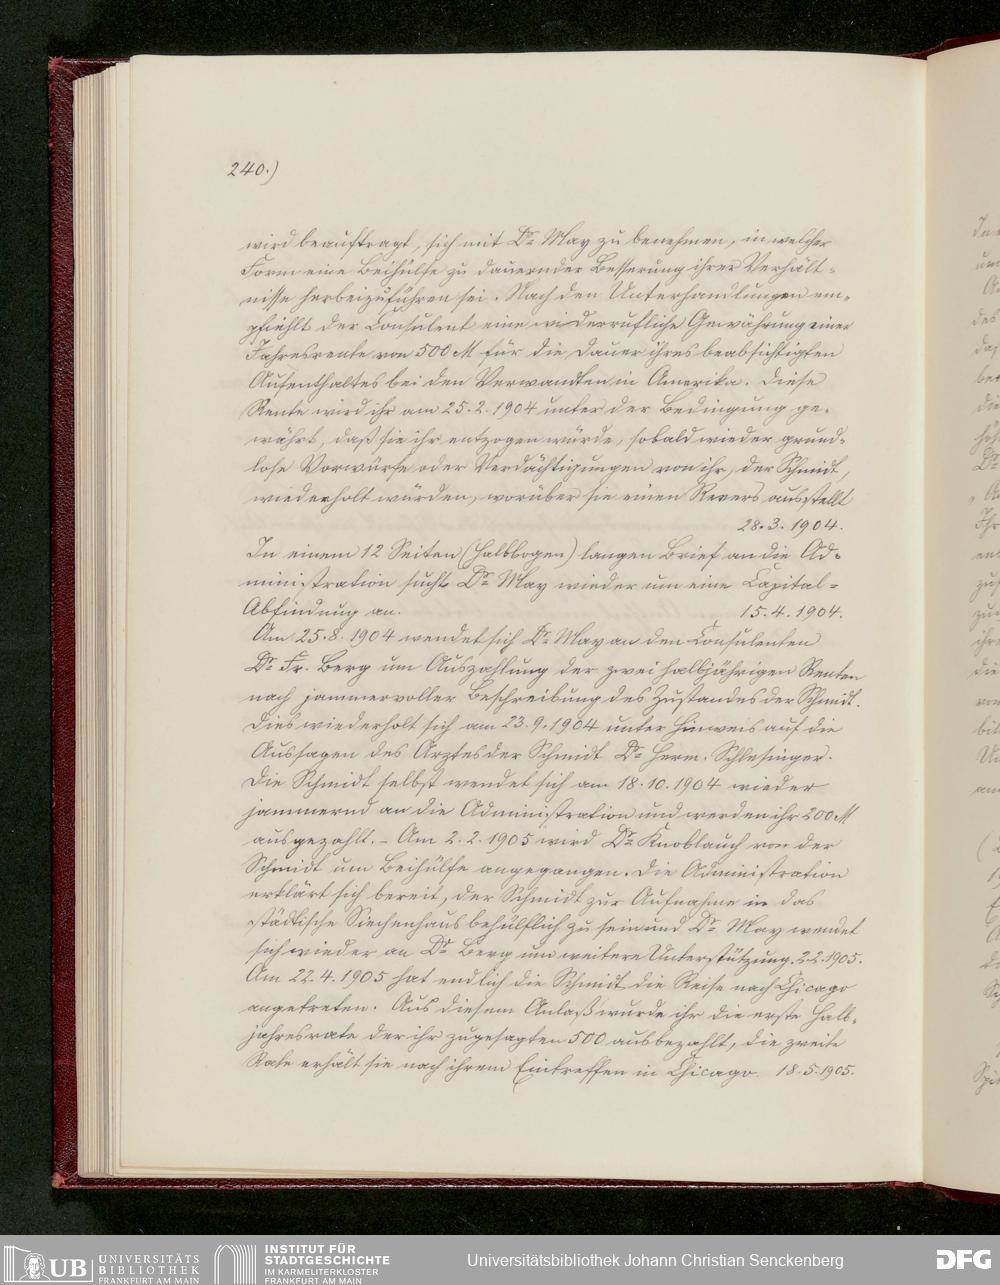 240.)
wird beauftragt, sich mit Dr May zu benehmen, in welcher
Form eine Beihülfe zu dauernder Besserung ihrer Verhält-
nisse herbeizuführen sei. Nach den Unterhandlungen em-
pfiehlt der Consulent eine widerrufliche Gewährung einer
Jahresrente von 500 M für die Dauer ihres beabsichtigten
Aufenthaltes bei den Verwandten in Amerika. Diese
Rente wird ihr am 25.2.1904 unter der Bedingung ge-
währt, daß sie ihr entzogen würde, sobald wieder grund-
lose Vorwürfe oder Verdächtigungen von ihr, der Schmidt,
wiederholt würden, worüber sie einen Revers ausstellt
28.3.1904.
In einem 12 Seiten (Halbbogen) langen Brief an die Ad-
ministration sucht Dr May wieder um eine Capital-
Abfindung an. 15.4.1904.
Am 25.8.1904 wendet sich Dr May an den Consulenten
Dr Fr. Berg um Auszahlung der zwei halbjährigen Renten
nach jammervoller Beschreibung des Zustandes der Schmidt.
Dies wiederholt sich am 23.9.1904 unter Hinweis auf die
Aussagen des Arztes der Schmidt Dr Herm. Schlesinger.
Die Schmidt selbst wendet sich am 18.10.1904 wieder
jammernd an die Administration und werden ihr 200 M
ausgezahlt. – Am 2.2.1905 wird Dr Knoblauch von der
Schmidt um Beihülfe angegangen. Die Administration
erklärt sich bereit, der Schmidt zur Aufnahme in das
städtische Siechenhaus behülflich zu sein und Dr May wendet
sich wieder an Dr Berg um weitere Unterstützung. 2.2.1905.
Am 22.4.1905 hat endlich die Schmidt die Reise nach Chicago
angetreten. Aus diesem Anlaß wurde ihr die erste Halb-
jahresrate der ihr zugesagten 500 ausbezahlt, die zweite
Rate erhält sie nach ihrem Eintreffen in Chicago. 18.5.1905.
UB UNIVERSITÄTS
BIBLIOTHEK
FRANKFURT AM MAIN
INSTITUT FÜR
STADTGESCHICHTE
IM KARMELITERKLOSTER
FRANKFURT AM MAIN
Universitätsbibliothek Johann Christian Senckenberg
DFG